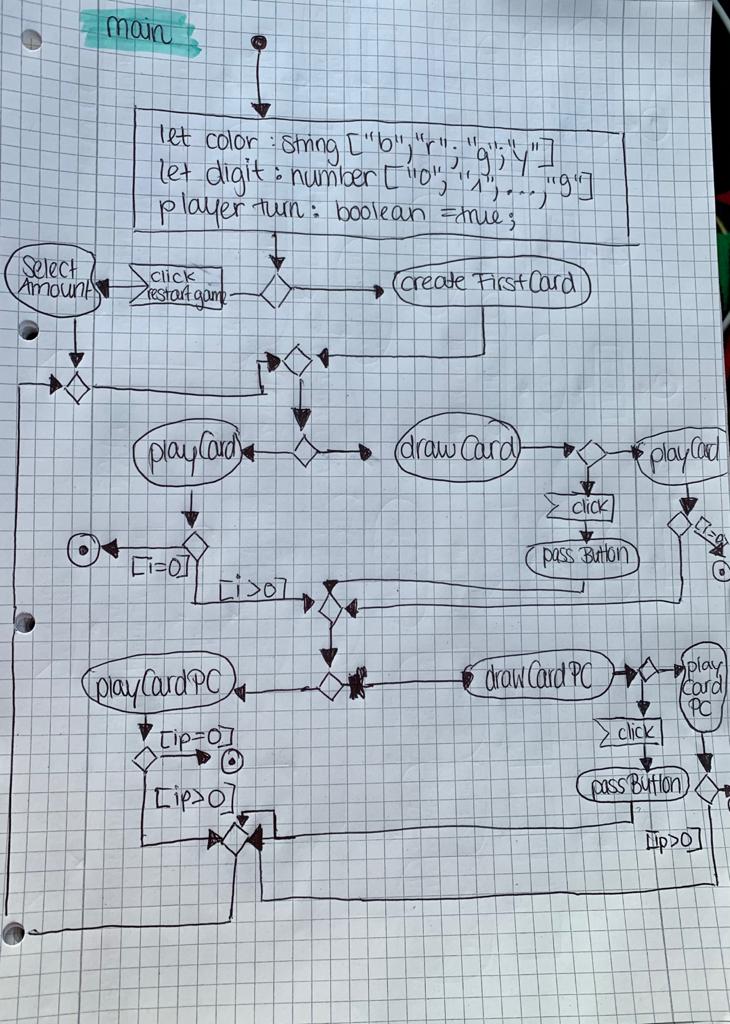 main
let color : string ["b"; "r"; "g"; "y"]
let digit : number ["0"; "1"; ..., "9"]
player turn : boolean = true;
Select
Amount
click
restart game
create First Card
play Card
draw Card
play Card
click
pass Button
[i=0]
[i=0]
[i>0]
play Card PC
draw Card PC
play
Card
PC
click
[ip=0]
pass Button
[ip>0]
[ip>0]